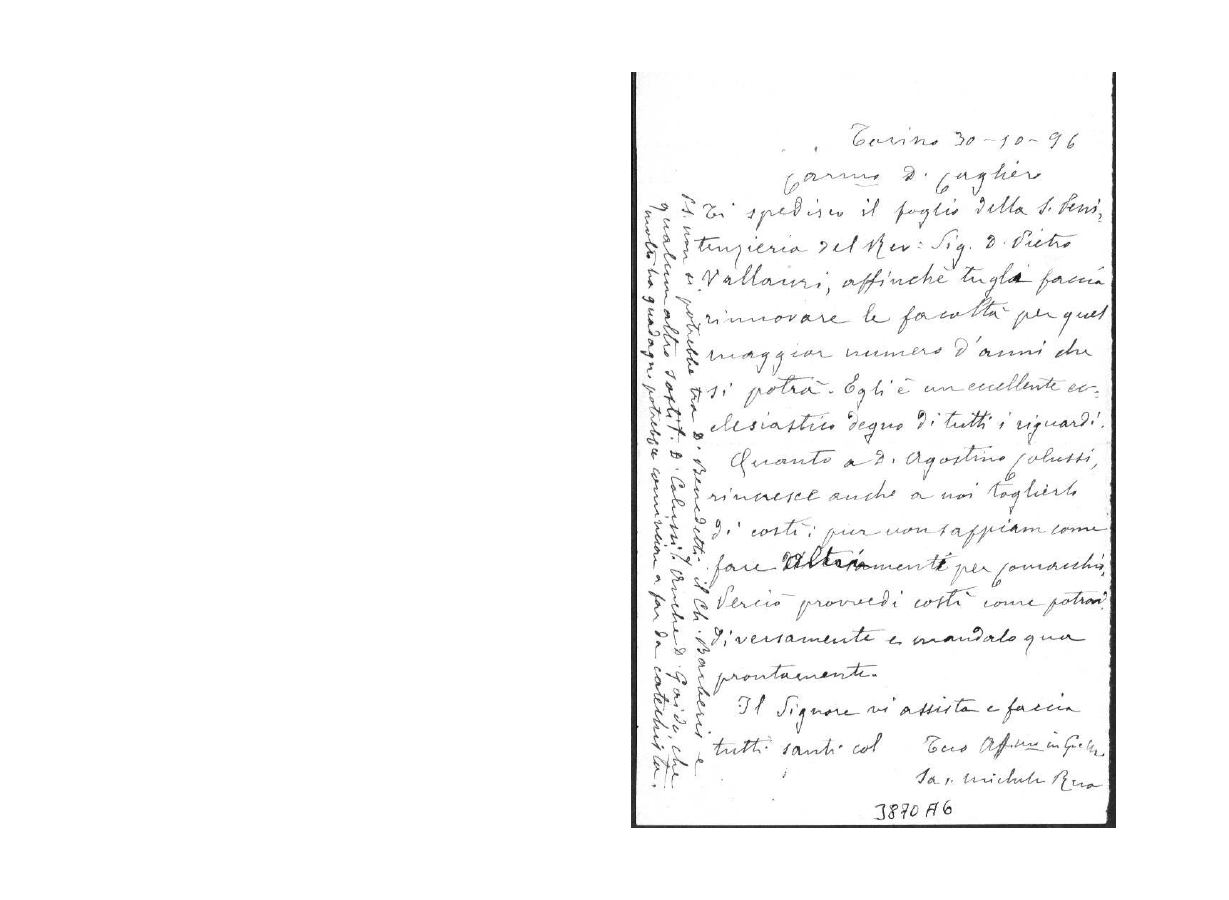 Torino 30-10-96
Carmo D. Cagliero
Ti spedisco il foglio della S. Peni-
tenzieria del Rev: Sig. D. Pietro
Vallauri, affinchè tu gli faccia
rinnovare le facoltà per quel
maggior numero d'anni che
si potrà. Egli è un eccellente ec-
clesiastico degno di tutti i riguardi.
Quanto a D. Agostino Colussi,
rincresce anche a noi toglierlo
di costì; pur non sappiam come
fare altrimenti per Comacchio.
Perciò provvedi costì come potrai
diversamente e mandalo qua
prontamente.
Il Signore vi assista e faccia
tutti santi col Tuo Aff.mo in G.
Sac. Michele Rua
3870 A6
Ps. non si potrebbe tra D. Benedetti, il Ch. Barberis e
qualcun altro sostit. D. Colussi? Anche D. Gaido che
molto ha guadagn. potrebbe cominciar a far da catechista.